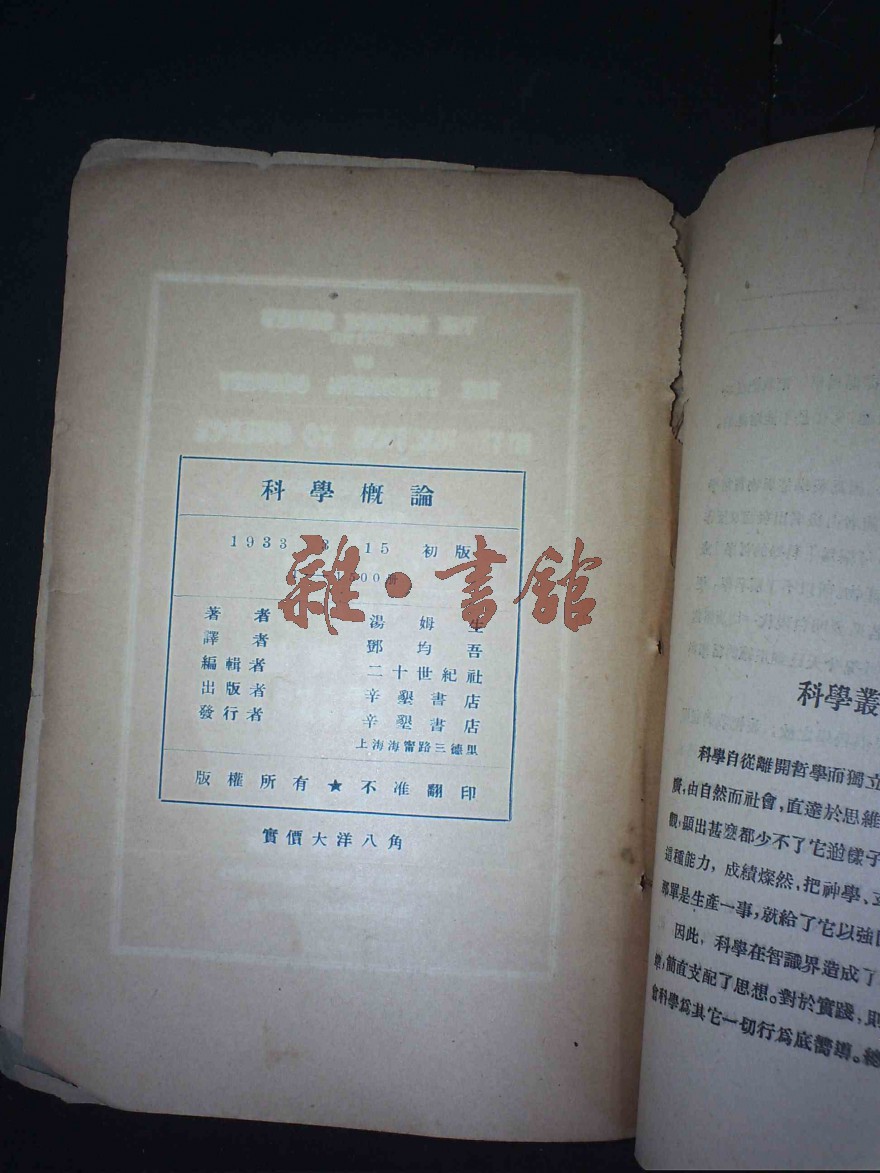 科學概論
1933 15 初版
00冊
著者 湯姆生
譯者 鄧均吾
編輯者 二十世紀社
出版者 辛墾書店
發行者 辛墾書店
上海海甯路三德里
版權所有★不准翻印
實價大洋八角
雜·書館
科學叢
科學自從離開哲學而獨立
廣,由自然而社會,直達於思維
觀,顯出甚麼都少不了它這樣子
這種能力,成績燦然,把神學、
那單是生產一事,就給了它以強
因此,科學在智識界造成了
簡直支配了思想。對於實踐,則
會科學爲其它一切行爲底嚮導。總